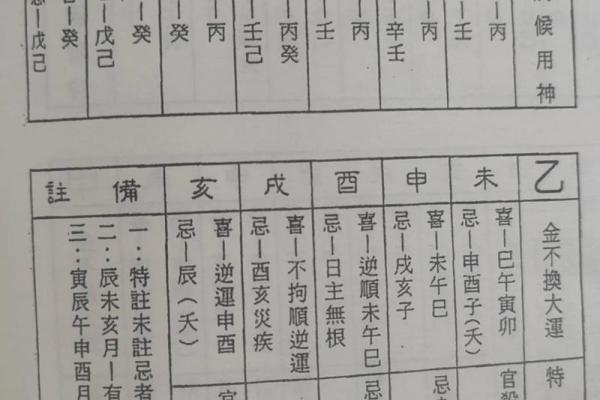 候用神
丙
壬
丙
辛壬
丙
壬
丙癸
壬己
丙
癸
癸
戊己
癸
忌—戊己
乙
金不換大運
特
未
喜—巳午寅卯
忌—申酉子(夭)
官殺
申
喜—未午巳
忌—戌亥子
忌
酉
喜—逆順未午巳
忌—日主無根
忌
戌
喜—不拘順逆運
忌—酉亥災疾
亥
喜—逆運申酉
忌—辰(夭)
官
備註
一:特註未註忌者
二:辰未亥月—有
三:寅辰午申酉月